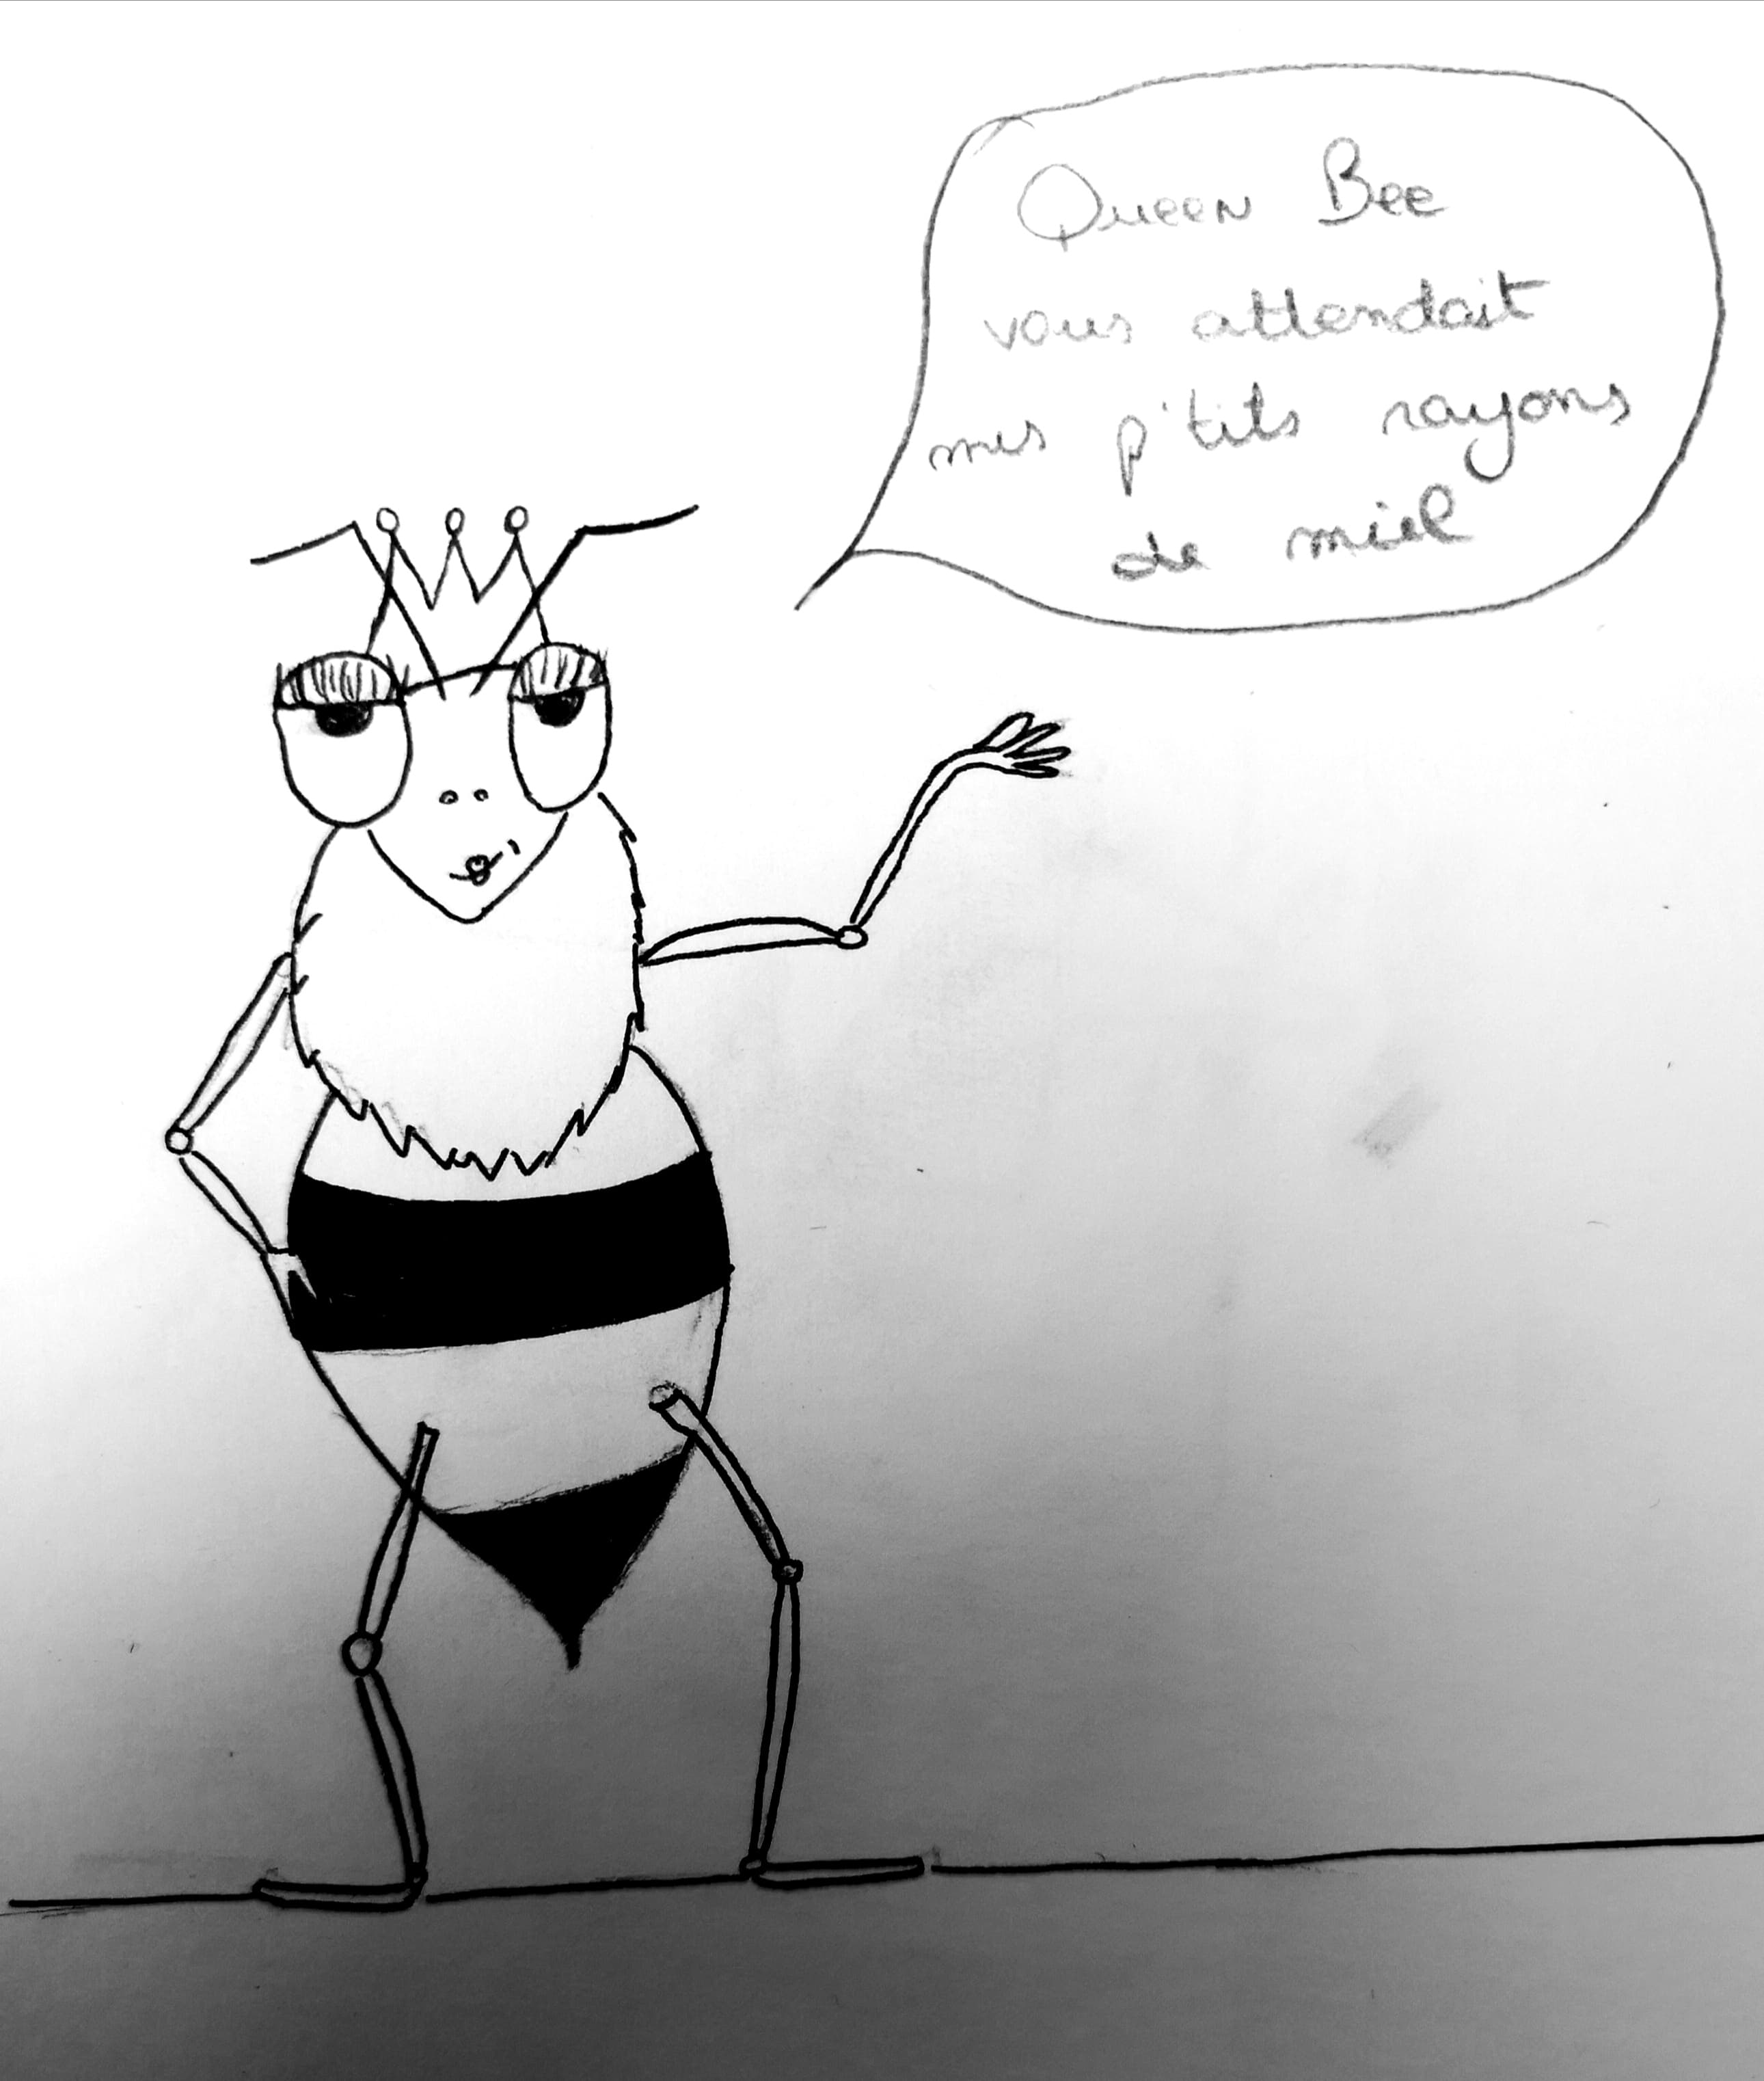 Queen Bee
vous attendait
mes p'tits rayons
de miel